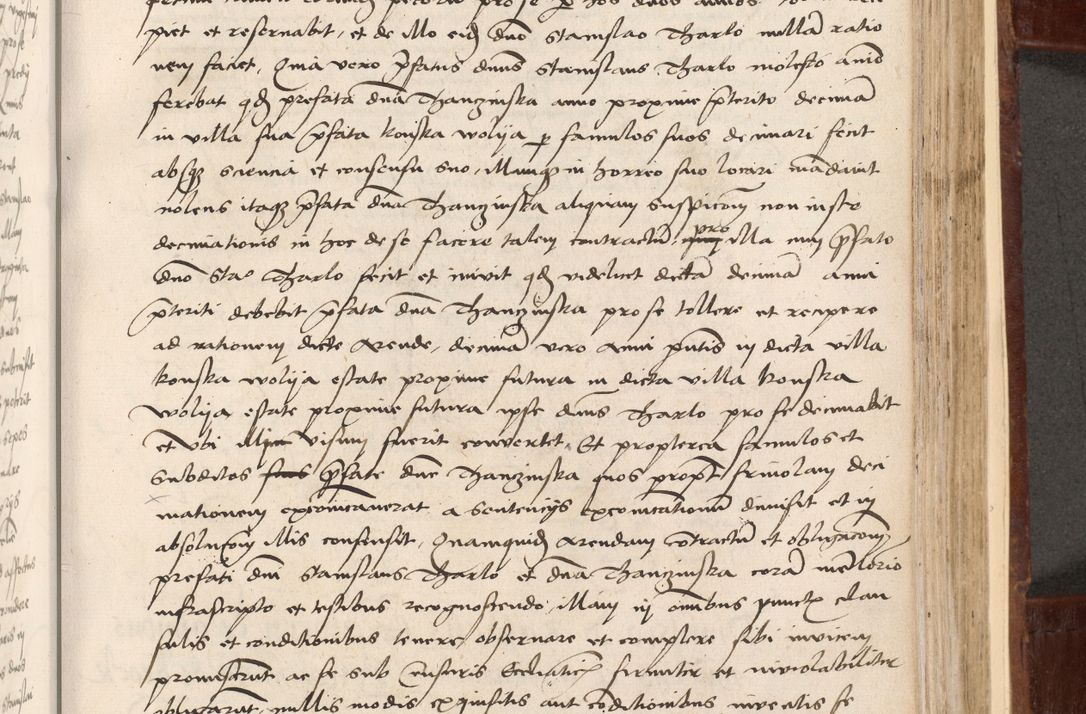 piet et reservabit, et de illo eid dno Stanislao Tharlo nullā ratio
nem faciet, Quia vero p̄fatus dnus Stanislaus Tharlo molesto animo
ferebat qd prefata dna Thanczinska anno proxime p̄terito decimā
in villa sua p̄fata konska wolija p famulos suos decimari fecit
absq sciencia et consensu suo, illamq in horreo suo locari mādavit
nolens itaq p̄fata dna Thanczinska aliquam suspicom non iuste
decimationis in hoc de se facere talem contractū pro illa cum p̄fato
dno Sta° Tharlo fecit et inivit qd videlicet dictā decimā anni
p̄teriti debebit p̄fata dna Thanczinska pro se tollere et recipere
ad rationem dicte arende, decimā vero anni p̄ntis in dicta villa
konska wolija estate proxime futura in dicta villa konska
wolija estate proxime futura ipse dnus Tharlo pro se decimabit
et ubi illi visum fuerit convertet, Et propterea famulos et
subditos p̄fate dne Thanczinska quos propt frivolam deci
mationem excōicaverat a sentencijs excōicationum dimisit et in
absolucom illis consensit, Quamquid arendam cōtractū et obligacom
prefati dni Stanislaus Tharlo et dna Thanczinska corā me notorio
infrascripto et testibus recognoscendo illam in omnibus punctis clau
sulis et conditionibus tenere, observare et complere sibi invicem
promiserūt ac se sub censuris Ecclīaticis firmiter et inviolabiliter
obligarūt, nullis modis exquisitis aut cōditionibus inventis se